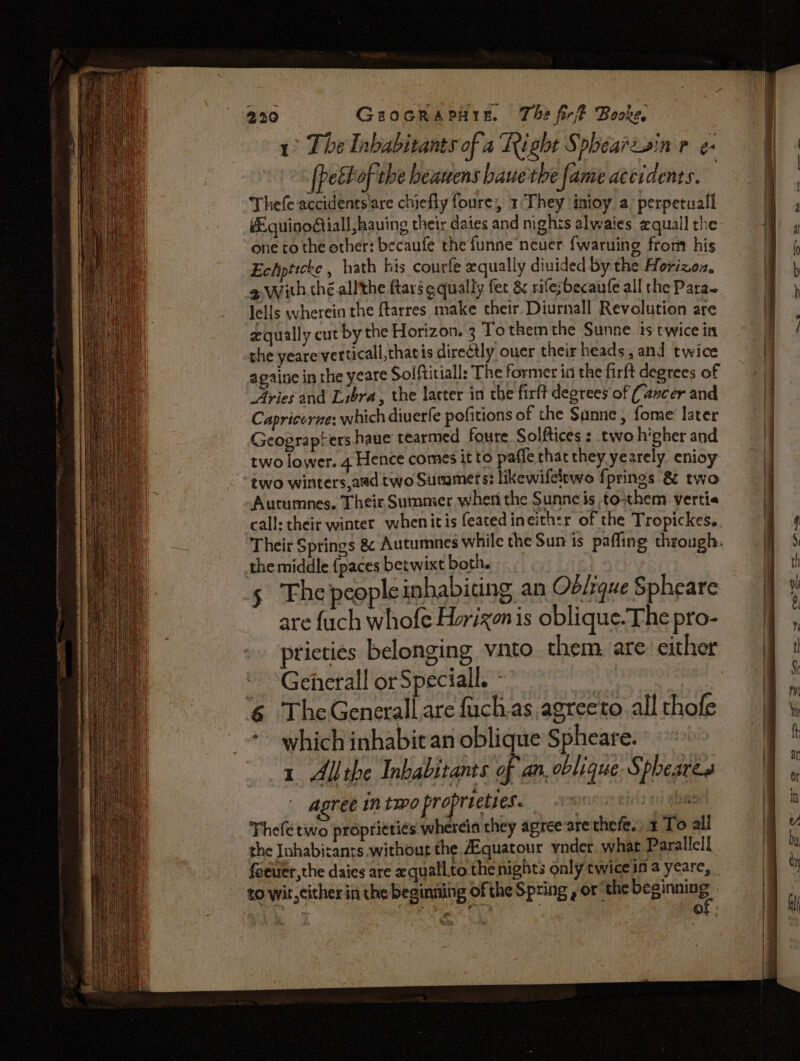 220 GEOGRAPHIE. The first Booke.
1 The Inhabitants of a Right Spheare in re-
spect of the heauens haue the same accidents.
These accidents are chiefly foure, 1 They inioy a perpetuall
Æquinoctiall, hauing their daies and nights alwaies æquall the
one to the other: because the sunne neuer swaruing from his
Eclipticke, hath his course æqually diuided by the Horizon.
2 With thē all the stars equally set & rise; because all the Para-
lells wherein the starres make their Diurnall Revolution are
æqually cut by the Horizon. 3 To them the Sunne is twice in
the yeare verticall, that is directly ouer their heads, and twice
againe in the yeare Solstitiall: The former in the first degrees of
Aries and Libra, the latter in the first degrees of Cancer and
Capricorne: which diuerse positions of the Sunne, some later
Geographers haue tearmed foure Solstices: two higher and
two lower. 4 Hence comes it to passe that they yearely enioy
two winters, and two Summers: likewise two springs & two
Autumnes. Their Summer when the Sunne is to them verti-
call: their winter when it is seated in either of the Tropickes.
Their Springs & Autumnes while the Sun is passing through
the middle spaces betwixt both.
5 The people inhabiting an Oblique Spheare
are such whose Horizon is oblique. The pro-
prieties belonging vnto them are either
Generall or Speciall.
6 The Generall are such as agree to all those
which inhabit an oblique Spheare.
1 All the Inhabitants of an oblique Spheares
agree in two proprieties.
These two proprieties wherein they agree are these. 1 To all
the Inhabitants without the Æquatour vnder what Parallell
soeuer, the daies are æquall to the nights only twice in a yeare,
to wit, either in the beginning of the Spring, or the beginning
of